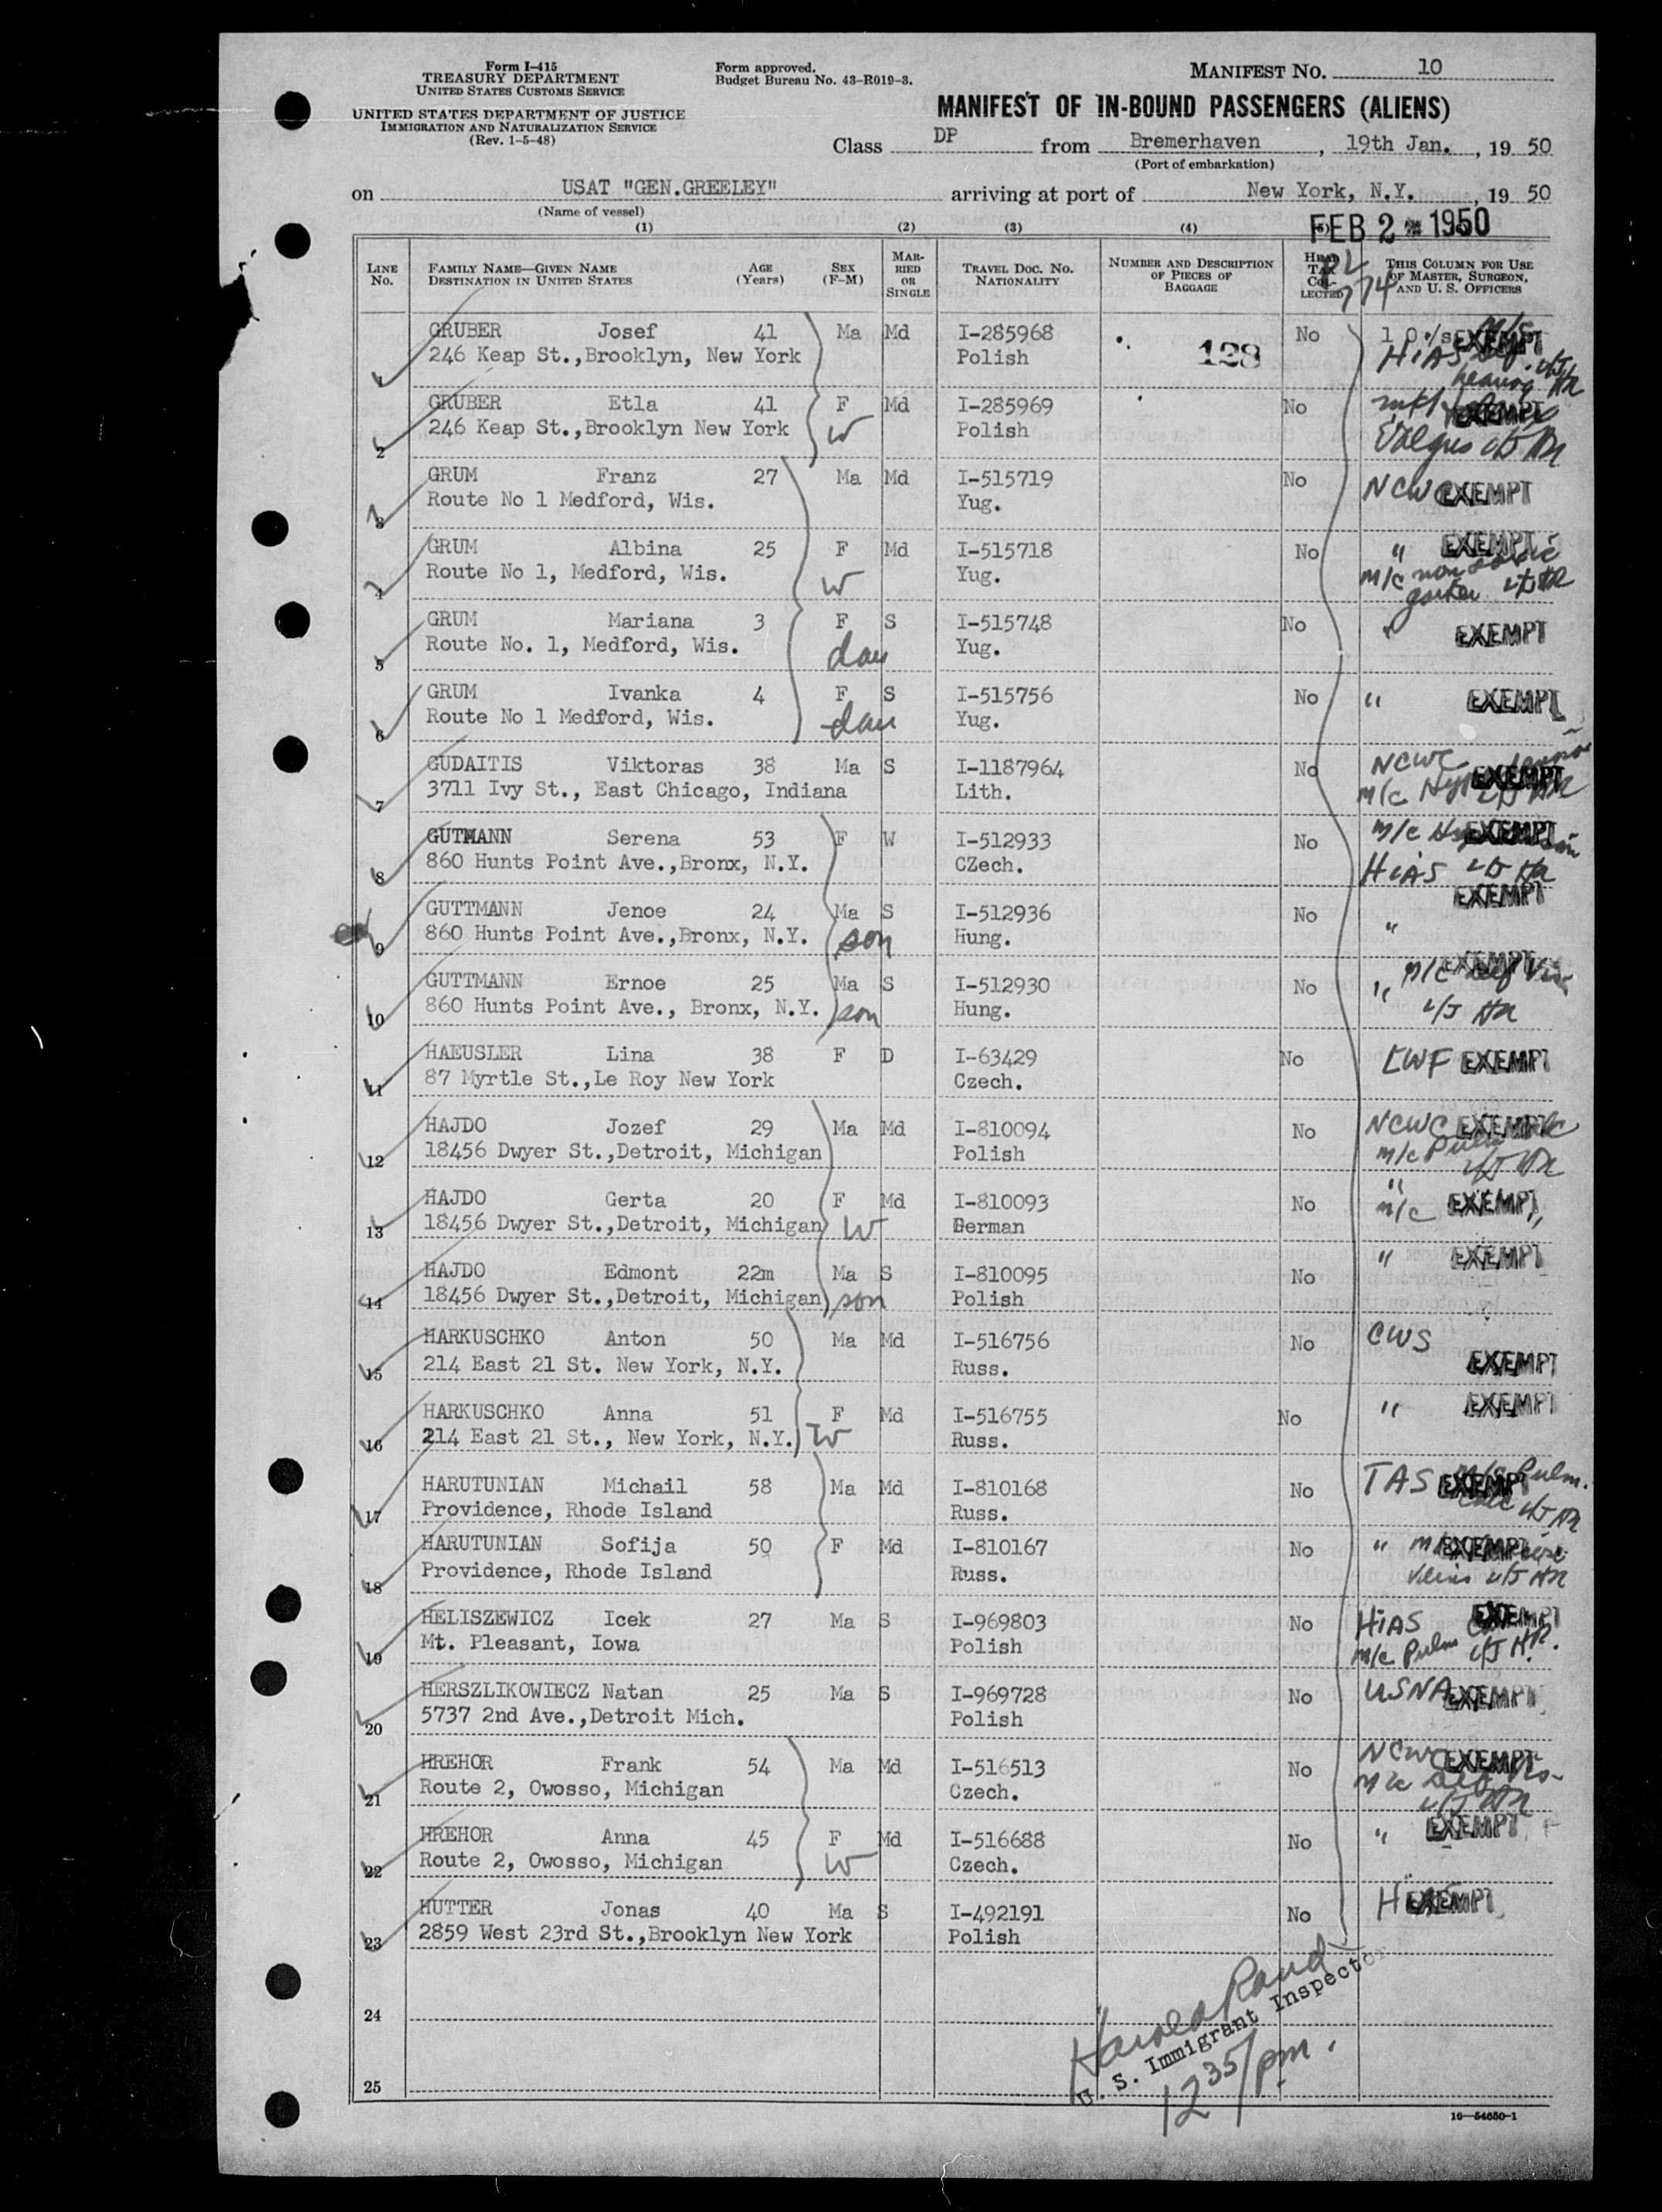 Form I-415
TREASURY DEPARTMENT
UNITED STATES CUSTOMS SERVICE
UNITED STATES DEPARTMENT OF JUSTICE
IMMIGRATION AND NATURALIZATION SERVICE
(Rev. 1-5-48)
Form approved.
Budget Bureau No. 43-R019-3.
MANIFEST NO. 10
MANIFEST OF IN-BOUND PASSENGERS (ALIENS)
Class DP from Bremerhaven, 19th Jan., 19 50
(Port of embarkation)
on USAT "GEN.GREELEY" arriving at port of New York, N.Y., 19 50
(Name of vessel)
FEB 2 1950
(1) (2) (3) (4)
LINE NO. FAMILY NAME—GIVEN NAME DESTINATION IN UNITED STATES AGE (Years) SEX (F-M) MARRIED OR SINGLE TRAVEL DOC. NO. NATIONALITY NUMBER AND DESCRIPTION OF PIECES OF BAGGAGE HEAD TAX COLLECTED THIS COLUMN FOR USE OF MASTER, SURGEON, AND U. S. OFFICERS
GRUBER Josef 41 Ma Md I-285968 128 No EXEMPT
1 246 Keap St.,Brooklyn, New York Polish HIAS
GRUBER Etla 41 F Md I-285969 No EXEMPT
2 246 Keap St.,Brooklyn New York W Polish
GRUM Franz 27 Ma Md I-515719 No NCWC EXEMPT
3 Route No 1 Medford, Wis. Yug.
GRUM Albina 25 F Md I-515718 No " EXEMPT
4 Route No 1, Medford, Wis. W Yug. m/c
GRUM Mariana 3 F S I-515748 No " EXEMPT
5 Route No. 1, Medford, Wis. dau Yug.
GRUM Ivanka 4 F S I-515756 No " EXEMPT
6 Route No 1 Medford, Wis. dau Yug.
GUDAITIS Viktoras 38 Ma S I-1187964 No NCWC EXEMPT
7 3711 Ivy St., East Chicago, Indiana Lith. m/c
GUTMANN Serena 53 F W I-512933 No m/c EXEMPT
8 860 Hunts Point Ave.,Bronx, N.Y. CZech. HIAS
GUTTMANN Jenoe 24 Ma S I-512936 No EXEMPT
9 860 Hunts Point Ave.,Bronx, N.Y. son Hung. "
GUTTMANN Ernoe 25 Ma S I-512930 No " m/c EXEMPT
10 860 Hunts Point Ave., Bronx, N.Y. son Hung.
HAEUSLER Lina 38 F D I-63429 No LWF EXEMPT
11 87 Myrtle St.,Le Roy New York Czech.
HAJDO Jozef 29 Ma Md I-810094 No NCWC EXEMPT
12 18456 Dwyer St.,Detroit, Michigan Polish m/c
HAJDO Gerta 20 F Md I-810093 No m/c EXEMPT
13 18456 Dwyer St.,Detroit, Michigan W German
HAJDO Edmont 22m Ma S I-810095 No " EXEMPT
14 18456 Dwyer St.,Detroit, Michigan son Polish
HARKUSCHKO Anton 50 Ma Md I-516756 No CWS
15 214 East 21 St. New York, N.Y. Russ. EXEMPT
HARKUSCHKO Anna 51 F Md I-516755 No " EXEMPT
16 214 East 21 St., New York, N.Y. W Russ.
HARUTUNIAN Michail 58 Ma Md I-810168 No TAS EXEMPT
17 Providence, Rhode Island Russ.
HARUTUNIAN Sofija 50 F Md I-810167 No " EXEMPT
18 Providence, Rhode Island Russ. veins
HELISZEWICZ Icek 27 Ma S I-969803 No HIAS EXEMPT
19 Mt. Pleasant, Iowa Polish m/c Pulm
HERSZLIKOWIECZ Natan 25 Ma S I-969728 No USNA EXEMPT
20 5737 2nd Ave.,Detroit Mich. Polish
HREHOR Frank 54 Ma Md I-516513 No NCWC EXEMPT
21 Route 2, Owosso, Michigan Czech. m/c
HREHOR Anna 45 F Md I-516688 No " EXEMPT
22 Route 2, Owosso, Michigan W Czech.
HUTTER Jonas 40 Ma S I-492191 No EXEMPT
23 2859 West 23rd St.,Brooklyn New York Polish
24
Harold Rand
U. S. Immigrant Inspector
12 35/pm.
25
16—54650-1